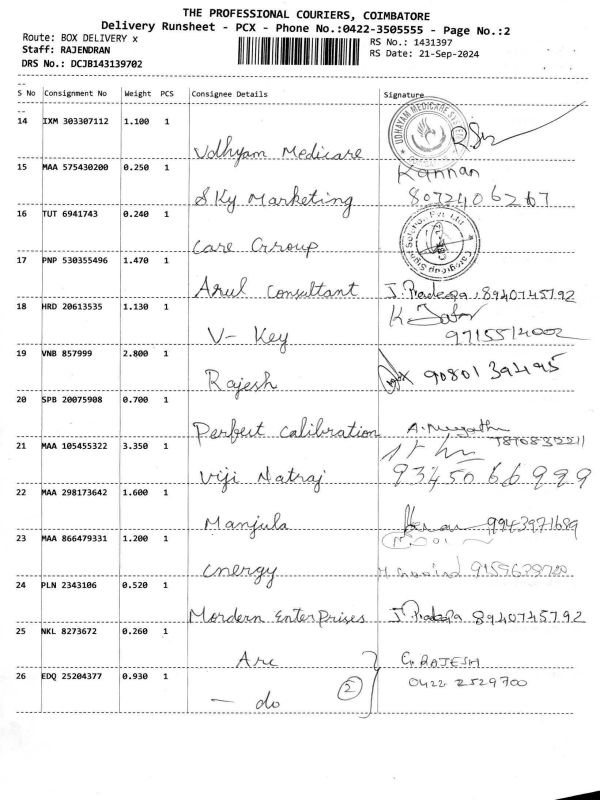 THE PROFESSIONAL COURIERS, COIMBATORE
Delivery Runsheet - PCX - Phone No.:0422-3505555 - Page No.:2
Route: BOX DELIVERY x
RS No.: 1431397
Staff: RAJENDRAN
RS Date: 21-Sep-2024
DRS No.: DCJB143139702
S No Consignment No Weight PCS Consignee Details Signature
14 IXM 303307112 1.100 1
UDHAYAM MEDICARE
Udhyam Medicare
15 MAA 575430200 0.250 1 Kannan
SKy Marketing 8072406267
16 TUT 6941743 0.240 1
Care Group
17 PNP 530355496 1.470 1
Arul Consultant J. Pradeepa, 8940745792
18 HRD 20613535 1.130 1 K.
V- Key 9715514002
19 VNB 857999 2.800 1
Rajesh 9080139495
20 SPB 20075908 0.700 1
Perfect Calibration
21 MAA 105455322 3.350 1
Viji Natraj 9345066999
22 MAA 298173642 1.600 1
Manjula 9943971689
23 MAA 866479331 1.200 1
Energy
24 PLN 2343106 0.520 1
Mordern Enterprises J. Pradeepa 8940745792
25 NKL 8273672 0.260 1
Arc G. RAJESH
26 EDQ 25204377 0.930 1 0422 2529700
— do 2